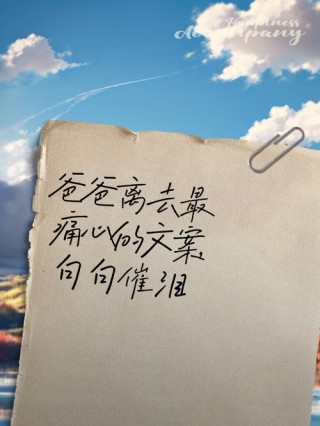 Happiness
Accompany
爸爸离去最
痛心的文案
句句催泪